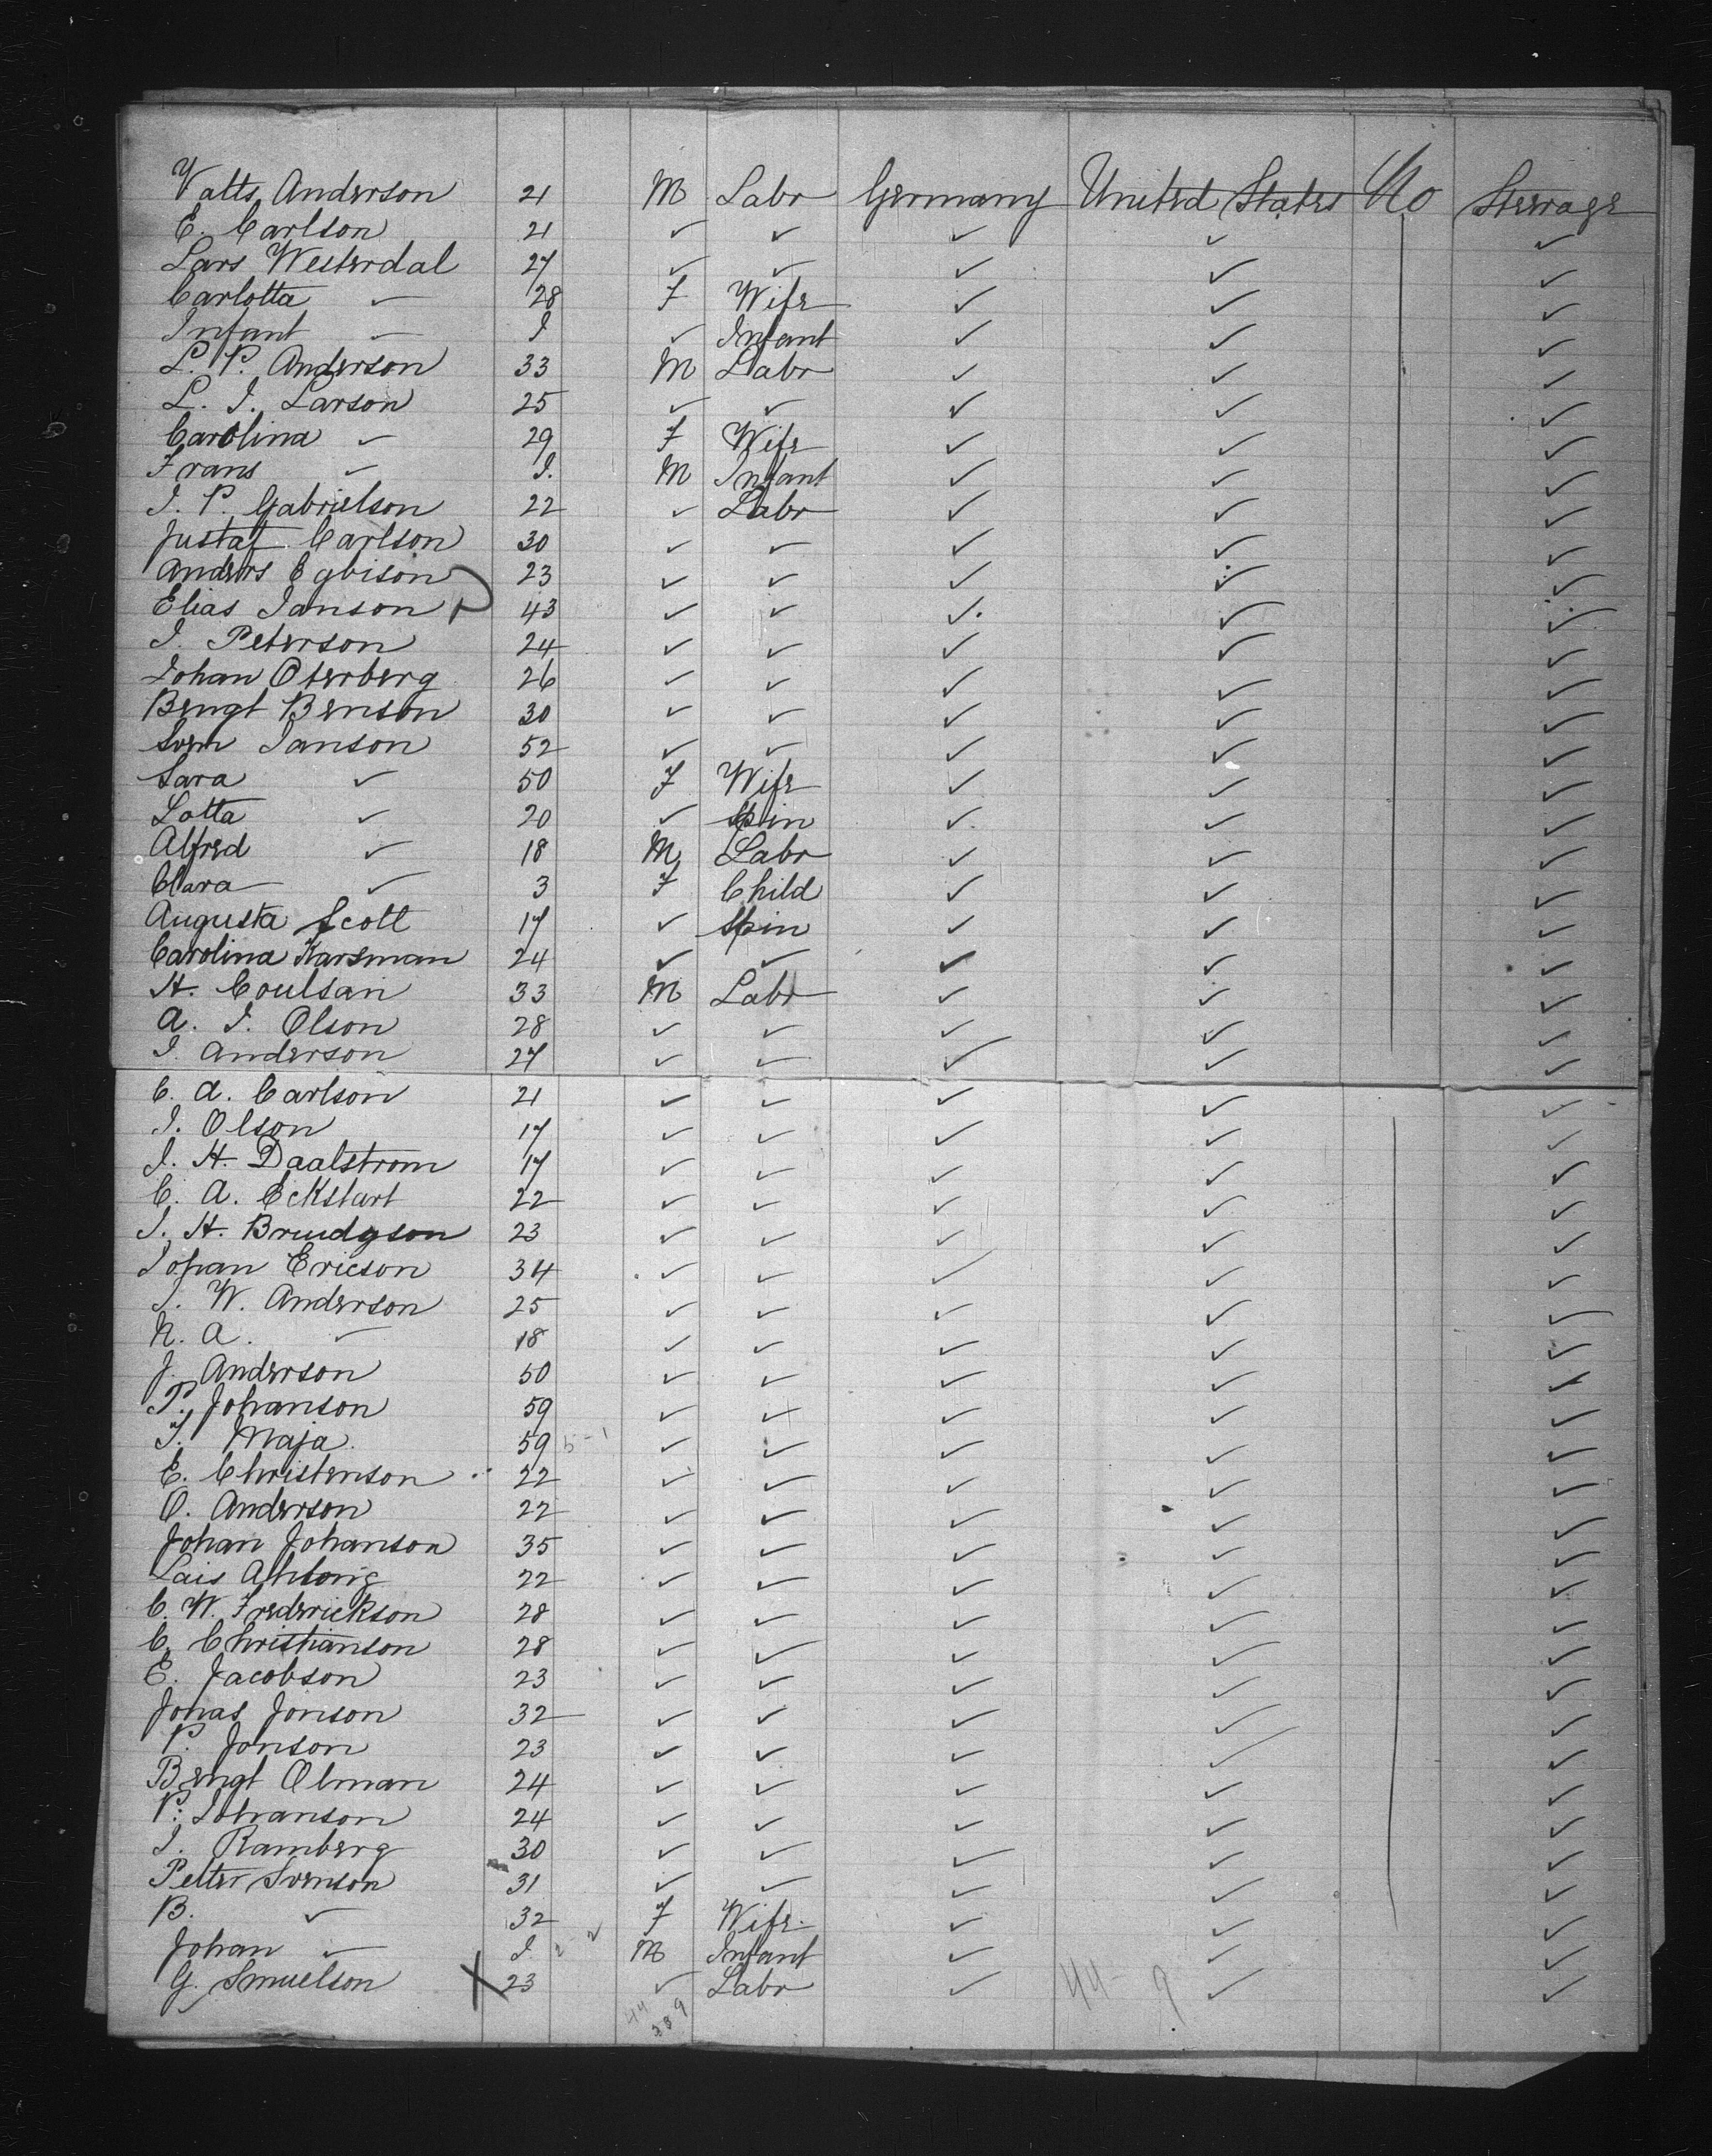 Valts Anderson 21 M Labr Germany United States No Steerage
E. Carlson 21 ✓ ✓ ✓ ✓ ✓
Lars Westerdal 27 ✓ ✓ ✓ ✓ ✓
Carlotta ✓ 28 F Wife ✓ ✓ ✓
Infant ✓ I ✓ Infant ✓ ✓ ✓
L. P. Anderson 33 M Labr ✓ ✓ ✓
L. I. Larson 25 ✓ ✓ ✓ ✓ ✓
Carolina ✓ 29 F Wife ✓ ✓ ✓
Frans ✓ I. M Infant ✓ ✓ ✓
I. P. Gabrielson 22 ✓ Labr ✓ ✓ ✓
Justaf Carlson 30 ✓ ✓ ✓ ✓ ✓
Anders Egbison 23 ✓ ✓ ✓ ✓ ✓
Elias Janson 43 ✓ ✓ ✓ ✓ ✓
I. Peterson 24 ✓ ✓ ✓ ✓ ✓
Johan Oterberg 26 ✓ ✓ ✓ ✓ ✓
Bengt Benson 30 ✓ ✓ ✓ ✓ ✓
Sven Janson 52 ✓ ✓ ✓ ✓ ✓
Sara ✓ 50 F Wife ✓ ✓ ✓
Lotta ✓ 20 ✓ Spin ✓ ✓ ✓
Alfred ✓ 18 M Labr ✓ ✓ ✓
Clara ✓ 3 F Child ✓ ✓ ✓
Augusta Scott 17 ✓ Spin ✓ ✓ ✓
Carolina Karsman 24 ✓ ✓ ✓ ✓ ✓
H. Coulsan 33 M Labr ✓ ✓ ✓
A. I. Olson 28 ✓ ✓ ✓ ✓ ✓
I. Anderson 27 ✓ ✓ ✓ ✓ ✓
C. A. Carlson 21 ✓ ✓ ✓ ✓ ✓
I. Olson 17 ✓ ✓ ✓ ✓ ✓
I. H. Daalstrom 17 ✓ ✓ ✓ ✓ ✓
C. A. Eckstart 22 ✓ ✓ ✓ ✓ ✓
I. H. Brudgson 23 ✓ ✓ ✓ ✓ ✓
Johan Ericson 34 ✓ ✓ ✓ ✓ ✓
I. W. Anderson 25 ✓ ✓ ✓ ✓ ✓
N. A. ✓ 18 ✓ ✓ ✓ ✓ ✓
J. Anderson 50 ✓ ✓ ✓ ✓ ✓
P. Johanson 59 ✓ ✓ ✓ ✓ ✓
I. Maja 59 5-1 ✓ ✓ ✓ ✓ ✓
E. Christenson 22 ✓ ✓ ✓ ✓ ✓
O. Anderson 22 ✓ ✓ ✓ ✓ ✓
Johan Johanson 35 ✓ ✓ ✓ ✓ ✓
Lais 22 ✓ ✓ ✓ ✓ ✓
C. W. Frederickson 28 ✓ ✓ ✓ ✓ ✓
C. Christianson 28 ✓ ✓ ✓ ✓ ✓
E. Jacobson 23 ✓ ✓ ✓ ✓ ✓
Jonas Jonson 32 ✓ ✓ ✓ ✓ ✓
P. Jonson 23 ✓ ✓ ✓ ✓ ✓
Bengt Olman 24 ✓ ✓ ✓ ✓ ✓
P. Johanson 24 ✓ ✓ ✓ ✓ ✓
I. Ramberg 30 ✓ ✓ ✓ ✓ ✓
Petter Svenson 31 ✓ ✓ ✓ ✓ ✓
B. ✓ 32 F Wife ✓ ✓ ✓
Johan ✓ I M Infant ✓ ✓ ✓
G. Smuelson X 23 ✓ Labr ✓ 44-9 ✓ ✓
44
239